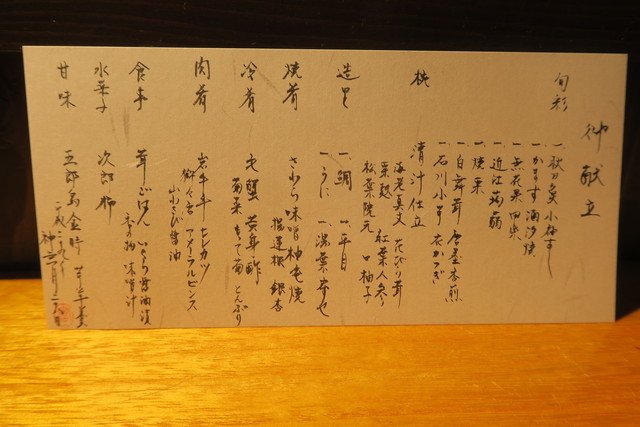 御献立
旬彩
一、秋刀魚小袖寿し
一、かます酒汐焼
一、無花果田楽
一、近江蒟蒻
一、焼栗
一、白舞茸 唐墨 杏煎
一、石川小芋 衣かつぎ
椀
清汁仕立
海老真丈 花びら茸
栗麩 紅葉人参
松葉隠元 口柚子
造里
一、鯛 一、平目
一、うに 一、湯葉寄せ
焼肴
さわら味噌柚庵焼
塩蓮根 銀杏
冷肴
毛蟹 黄身酢
菊菜 もって菊 とんぶり
肉肴
岩手牛ヒレカツ
アメーラルビンス
山わさび醤油
食事
茸ごはん いくら醤油漬
香の物 味噌汁
水菓子
次郎柿
甘味
五郎島金時
神無月